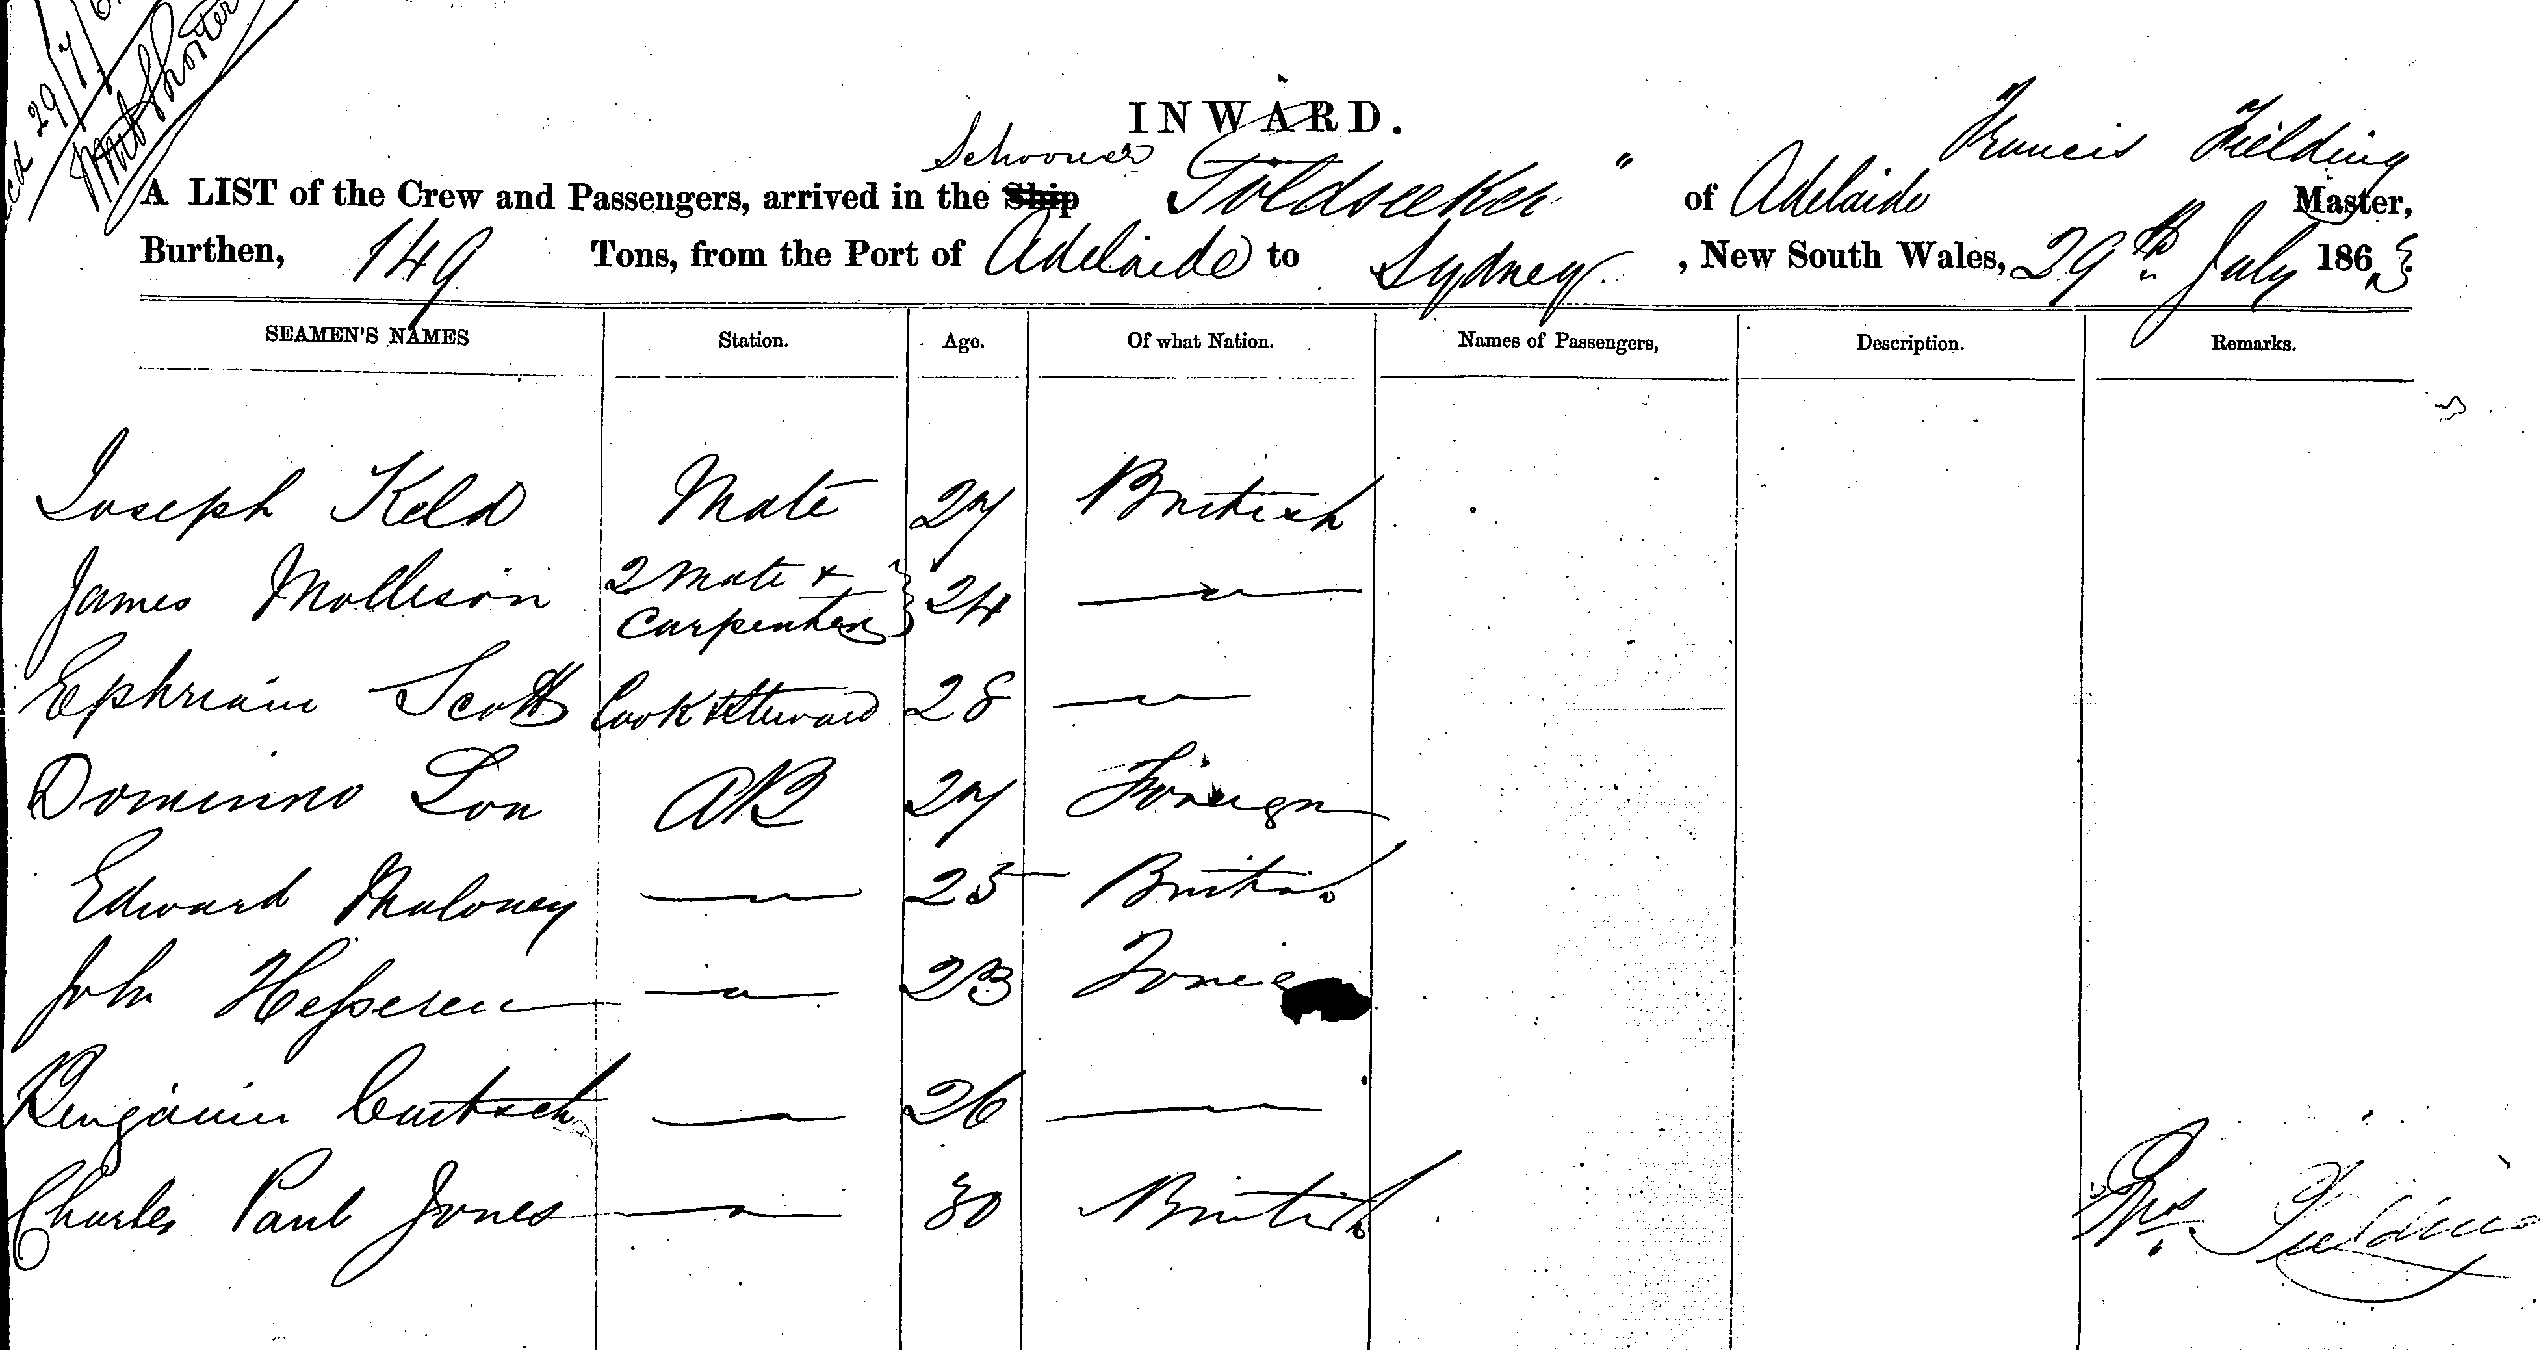 recd 29/7/6
INWARD.
Schooner Francis Fielding
A LIST of the Crew and Passengers, arrived in the Ship Goldseeker " of Adelaide Master,
Burthen, 149 Tons, from the Port of Adelaide to Sydney , New South Wales, 29th July 1863
SEAMEN'S NAMES Station. Age. Of what Nation. Names of Passengers, Description. Remarks.
Joseph Keld Mate 27 British
James Mollison 2 Mate + Carpenter 24 —
Ephriam Scott Cook & Steward 28 —
Dominno Lon AB 27 Foreign
Edward Maloney — 25 British
John Hesseren — 23 Foreig
Benjamin — 26 —
Charles Paul Jones — 30 British
Fras. Fielding